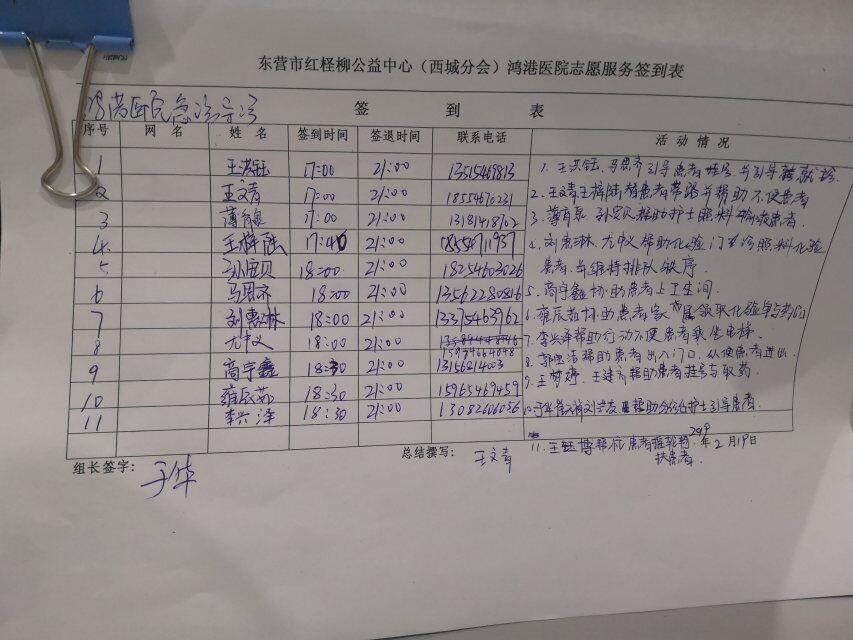 东营市红柽柳公益中心（西城分会）鸿港医院志愿服务签到表
鸿港医院急诊导诊
签 到 表
序号 网 名 姓 名 签到时间 签退时间 联系电话 活 动 情 况
1 王洪钰 17:00 21:00 13515469813
2 王文青 17:00 21:00 18554670231
3 薄育泉 17:00 21:00 13181418702
4 王梓陆 17:40 21:00 18554711937
5 孙宝贝 18:00 21:00 18254603026
6 马思齐 18:00 21:00 13562280816
7 刘惠林 18:00 21:00 13375463962
8 尤中义 18:00 21:00
15974664048
9 高宇鑫 18:30 21:00 13156214003
10 雍辰茹 18:30 21:00 15965469459
11 李兴泽 18:30 21:00 13082606056
1. 王洪钰、马思齐引导患者挂号、并引导
2. 王文青王梓陆替患者带路并帮助不便患者
3. 孙宝贝帮助护士照料输液患者.
4. 刘惠林、尤中义帮助化验门诊照料化验
患者、并维持排队秩序.
5. 高宇鑫协助患者上卫生间.
6. 雍辰茹协助患者家属领取化验单与药品
7. 李兴泽帮助行动不便患者乘坐电梯.
8. 帮助患者出入门口、以便患者进出.
9. 王梦婷、帮助患者挂号与取药.
10. 护士引导患者.
11. 患者推轮椅
扶患者.
年2月19日
组长签字： 于华
总结撰写： 王文青